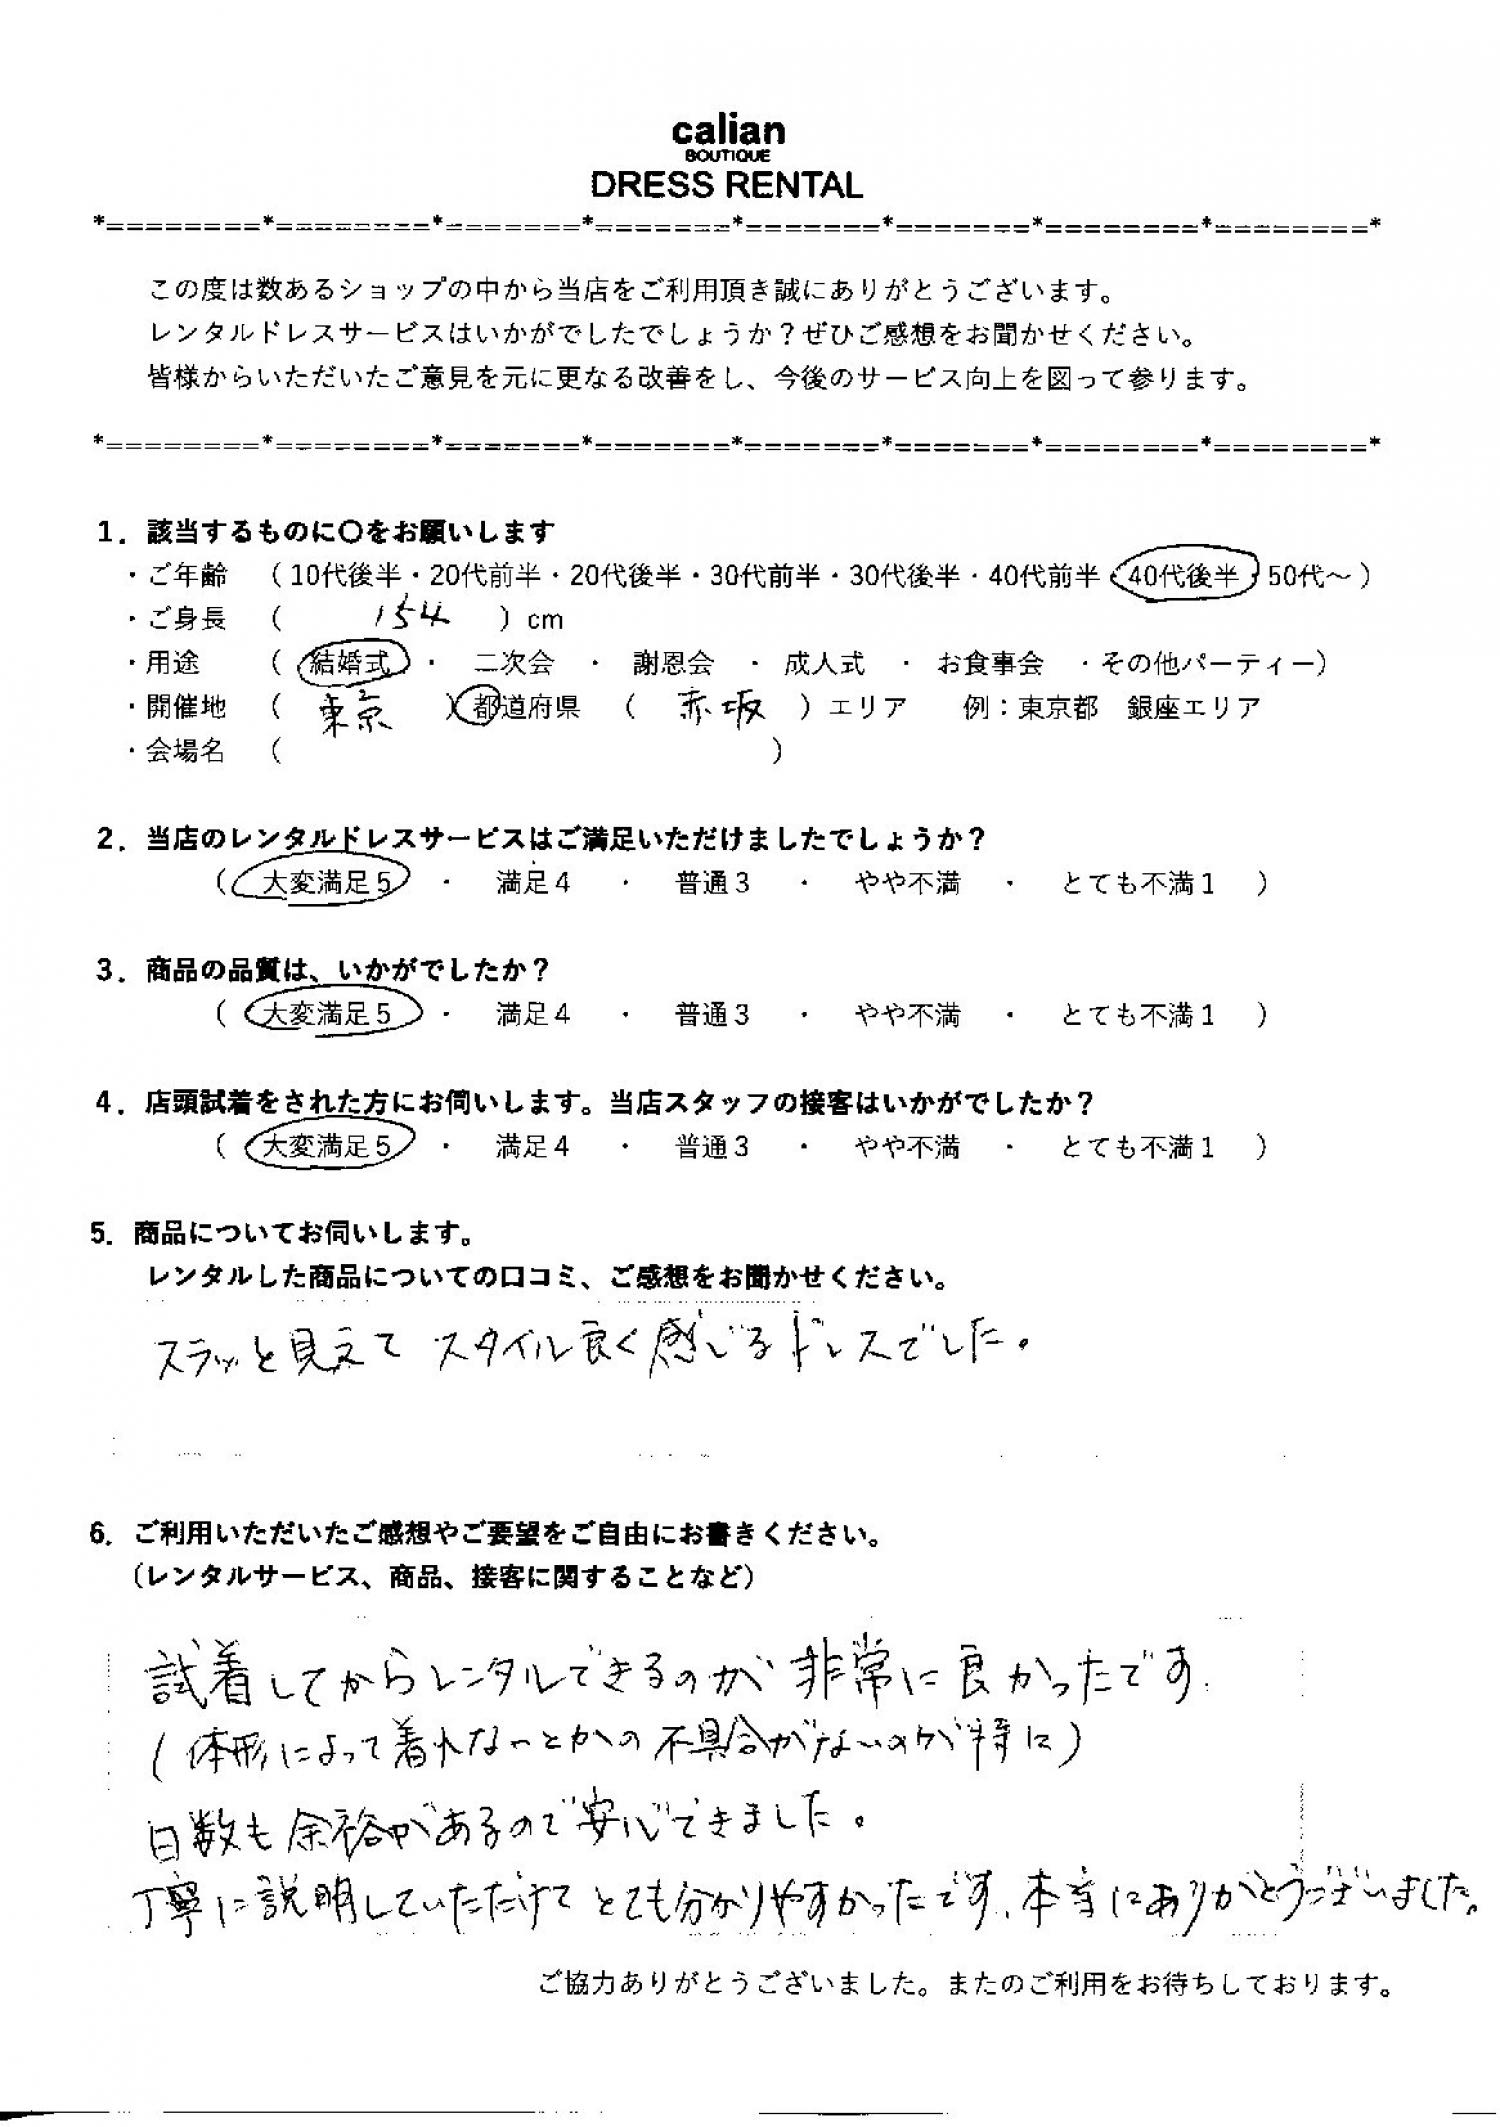 calian
BOUTIQUE
DRESS RENTAL
*========*========*=======*=======*=======*=======*========*========*
この度は数あるショップの中から当店をご利用頂き誠にありがとうございます。
レンタルドレスサービスはいかがでしたでしょうか？ぜひご感想をお聞かせください。
皆様からいただいたご意見を元に更なる改善をし、今後のサービス向上を図って参ります。
*========*========*=======*=======*=======*=======*========*========*
1．該当するものに〇をお願いします
・ご年齢　（ 10代後半・20代前半・20代後半・30代前半・30代後半・40代前半・40代後半・50代～ ）
・ご身長　（　154　）cm
・用途　（ 結婚式 ・ 二次会 ・ 謝恩会 ・ 成人式 ・ お食事会 ・その他パーティー）
・開催地　（　東京　）都道府県　（　赤坂　）エリア　例：東京都　銀座エリア
・会場名　（　　　）
2．当店のレンタルドレスサービスはご満足いただけましたでしょうか？
（ 大変満足５ ・ 満足４ ・ 普通３ ・ やや不満 ・ とても不満１ ）
3．商品の品質は、いかがでしたか？
（ 大変満足５ ・ 満足４ ・ 普通３ ・ やや不満 ・ とても不満１ ）
4．店頭試着をされた方にお伺いします。当店スタッフの接客はいかがでしたか？
（ 大変満足５ ・ 満足４ ・ 普通３ ・ やや不満 ・ とても不満１ ）
5．商品についてお伺いします。
レンタルした商品についての口コミ、ご感想をお聞かせください。
スラッと見えて スタイル良く感じるドレスでした。
6．ご利用いただいたご感想やご要望をご自由にお書きください。
（レンタルサービス、商品、接客に関することなど）
試着してからレンタルできるのが 非常に良かったです.
(体形によって着れないとかの不具合がないのが特に)
日数も余裕があるので安心できました。
丁寧に説明していただけて とても分かりやすかったです. 本当にありがとうございました。
ご協力ありがとうございました。またのご利用をお待ちしております。